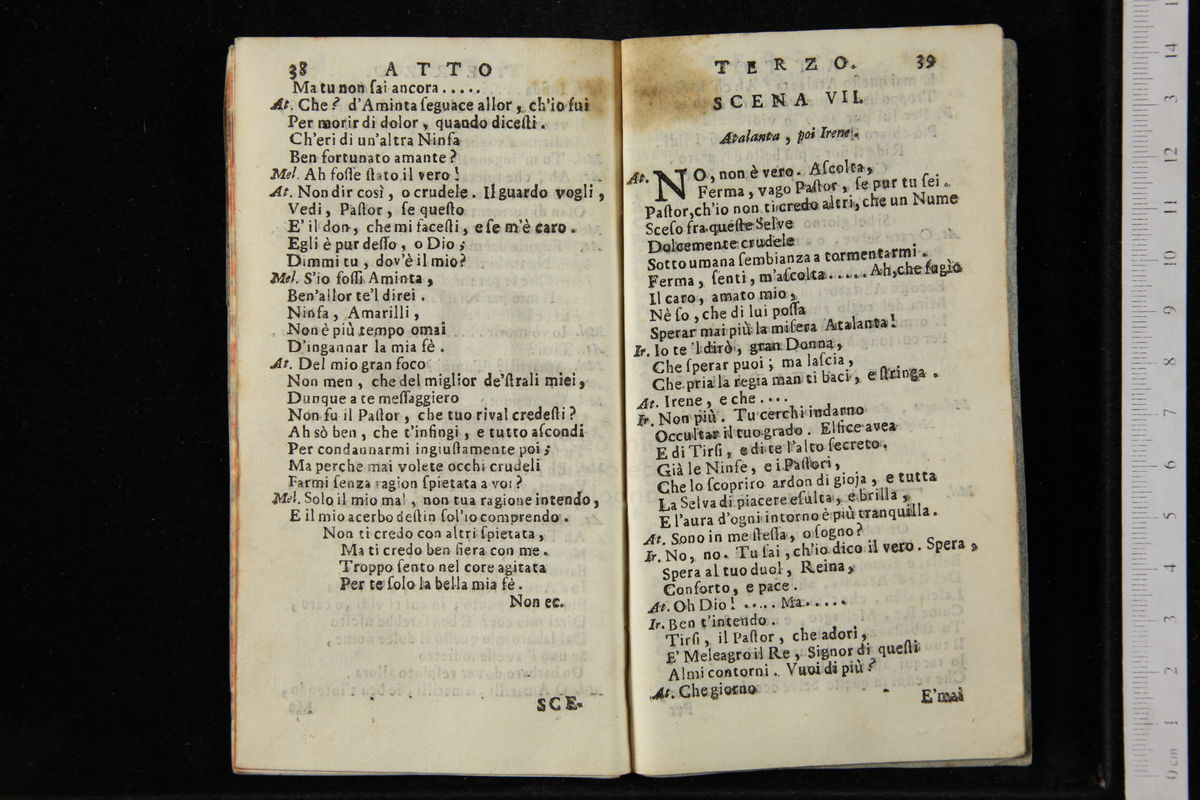 38 ATTO
Ma tu non ſai ancora .....
At. Che? d'Aminta ſeguace allor, ch'io fui
Per morir di dolor, quando diceſti.
Ch'eri di un'altra Ninfa
Ben fortunato amante?
Mel. Ah foſſe ſtato il vero!
At. Non dir così, o crudele. Il guardo vogli,
Vedi, Paſtor, ſe queſto
E' il don, che mi faceſti, e ſe m'è caro.
Egli è pur deſſo, o Dio;
Dimmi tu, dov'è il mio?
Mel. S'io foſſi Aminta,
Ben'allor te'l direi.
Ninfa, Amarilli,
Non è più tempo omai
D'ingannar la mia fè.
At. Del mio gran foco
Non men, che del miglior de'ſtrali miei,
Dunque a te meſſaggiero
Non fu il Paſtor, che tuo rival credeſti?
Ah sò ben, che t'infingi, e tutto aſcondi
Per condannarmi ingiuſtamente poi;
Ma perche mai volete occhi crudeli
Farmi ſenza ragion ſpietata a voi?
Mel. Solo il mio mal, non tua ragione intendo,
E il mio acerbo deſtin ſol'io comprendo.
Non ti credo con altri ſpietata,
Ma ti credo ben fiera con me.
Troppo ſento nel core agitata
Per te ſolo la bella mia fè.
Non ec.
SCE-
TERZO. 39
SCENA VII.
Atalanta, poi Irene.
At. NO, non è vero. Aſcolta,
Ferma, vago Paſtor, ſe pur tu ſei.
Paſtor, ch'io non ti credo altri, che un Nume
Sceſo fra queſte Selve
Dolcemente crudele
Sotto umana ſembianza a tormentarmi.
Ferma, ſenti, m'aſcolta ..... Ah, che fugìo
Il caro, amato mio,
Nè ſo, che di lui poſſa
Sperar mai più la miſera Atalanta!
Ir. Io te'l dirò, gran Donna,
Che ſperar puoi; ma laſcia,
Che pria la regia man ti baci, e ſtringa.
At. Irene, e che ....
Ir. Non più. Tu cerchi indarno
Occultar il tuo grado. Elfice avea
E di Tirſi, e di te l'alto ſecreto.
Già le Ninfe, e i Paſtori,
Che lo ſcopriro ardon di gioja, e tutta
La Selva di piacere eſulta, e brilla,
E l'aura d'ogni intorno è più tranquilla.
At. Sono in me ſteſſa, o ſogno?
Ir. No, no. Tu ſai, ch'io dico il vero. Spera,
Spera al tuo duol, Reina,
Conforto, e pace.
At. Oh Dio! ..... Ma .....
Ir. Ben t'intendo.
Tirſi, il Paſtor, che adori,
E' Meleagro il Re, Signor di queſti
Almi contorni. Vuoi di più?
At. Che giorno
E' mai
14
13
12
11
10
9
8
7
6
5
4
3
2
1
0 cm